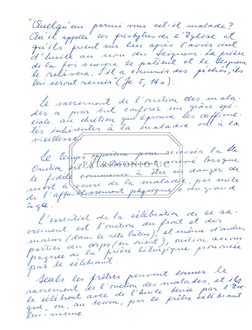 "Quelqu'un parmi vous est-il malade?
Qu'il appelle les presbytres de l'Eglise et
qu'ils prient sur lui après l'avoir oint
d'huile au nom du Seigneur. La prière
de la foi sauvera le patient et le Seigneur
le relèvera. S'il a commis des péchés, ils
lui seront remis" (Jc 5, 14s).
Le sacrement de l'onction des mala-
des a pour but conférer une grâce spé-
ciale au chrétien qui éprouve les difficul-
tés inhérentes à la maladie ou à la
vieillesse.
Le temps opportun pour recevoir la Ste
Onction est arrivé lorsque
le fidèle commence à être en danger de
mort à cause de la maladie, par suite
de l'affaiblissement physique ou du grand
âge.
L'essentiel de la célébration de ce sa-
crement est l'onction du front et des
mains (dans le rite latin), et même d'autres
parties du corps (en orient), onction accom-
pagnée de la prière liturgique prononcée
par le célébrant.
Seuls les prêtres peuvent donner le
sacrement de l'onction des malades, et
le célèbrent avec de l'huile bénie par l'évê-
que, ou, au besoin, par le prêtre célébrant
lui-même.
PATRIMONIO UC